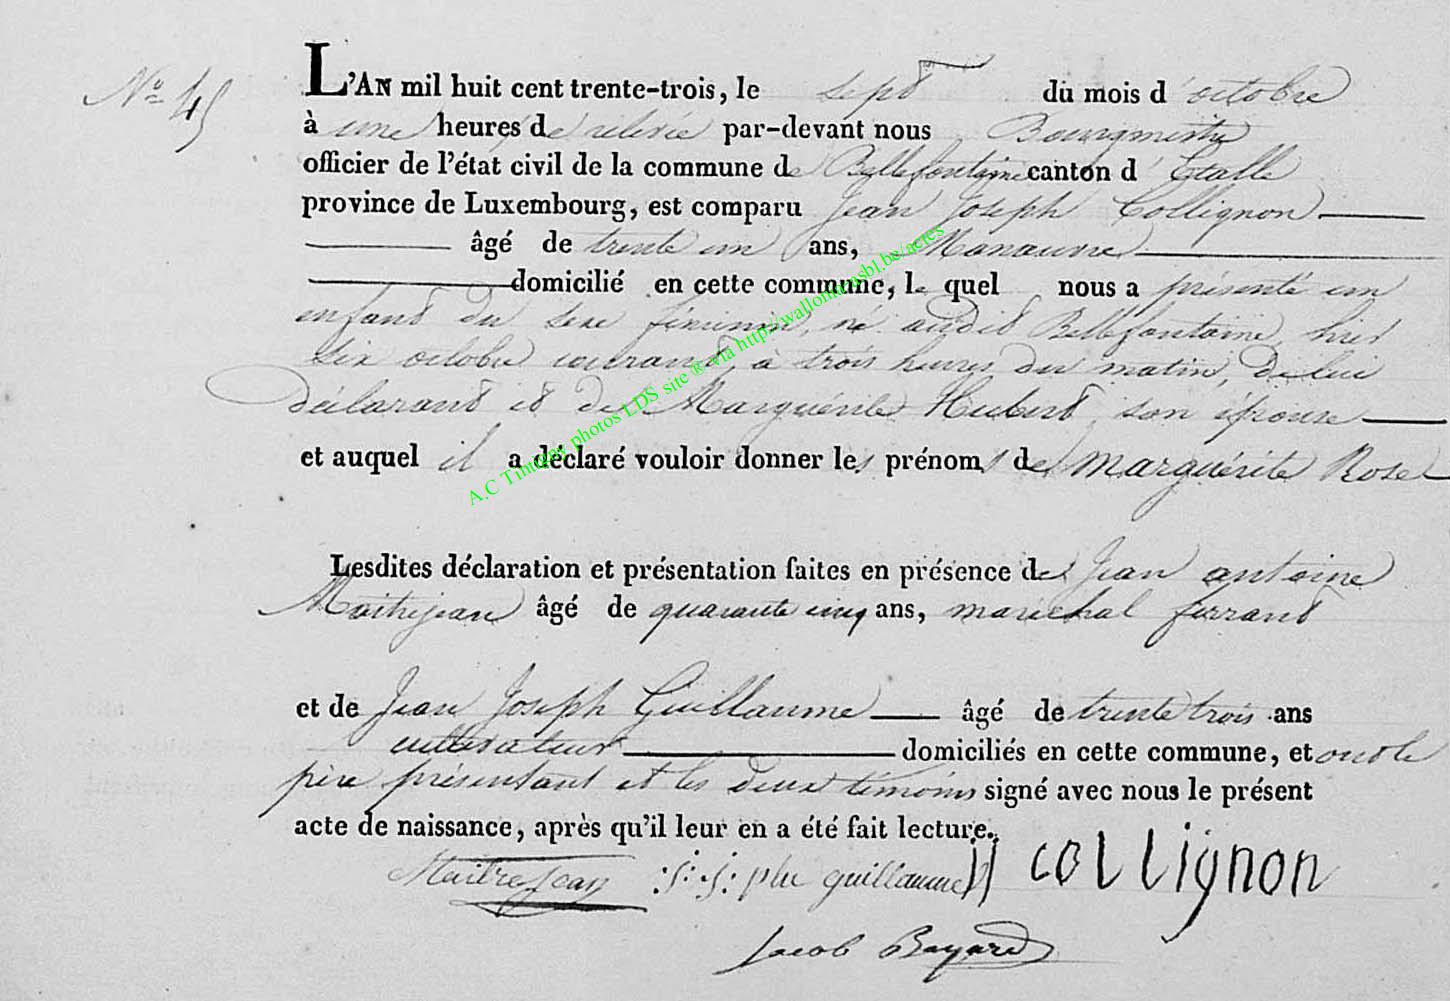 N° 45
L'AN mil huit cent trente-trois, le sept du mois d'octobre
à une heures de relevée par-devant nous Bourgmestre
officier de l'état civil de la commune de Bellefontaine canton d'Etalle
province de Luxembourg, est comparu Jean Joseph Collignon
âgé de trente un ans, Manœuvre
domicilié en cette commune, le quel nous a présenté un
enfant du sexe féminin, né audit Bellefontaine, hier
six octobre courant, à trois heures du matin, de lui
déclarant et de Marguérite Hubert son épouse
et auquel il a déclaré vouloir donner les prénoms de Marguerite Rose
Lesdites déclaration et présentation faites en présence de Jean antoine
Maitrejean âgé de quarante cinq ans, marechal ferrant
et de Jean Joseph Guillaume âgé de trente trois ans
cultivateur domiciliés en cette commune, et ont le
père présentant et les deux témoins signé avec nous le présent
acte de naissance, après qu'il leur en a été fait lecture.
Maitrejean J: J: phe guillaume JJ collignon
Jacob Bayard
A.C Tintigny photos LDS site ® via http://wallonia-asbl.be/actes